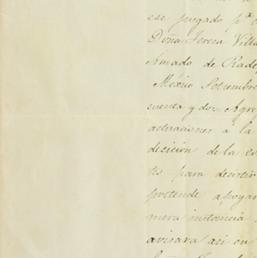 ese juzgado pª
Doña Teresa Villa
Amado de
Mexico Setiembre
cuenta y dos. Agre
actuaciones á la
decision de la
para decirtir
pretende apoyar
mera instancia
avisara asi en